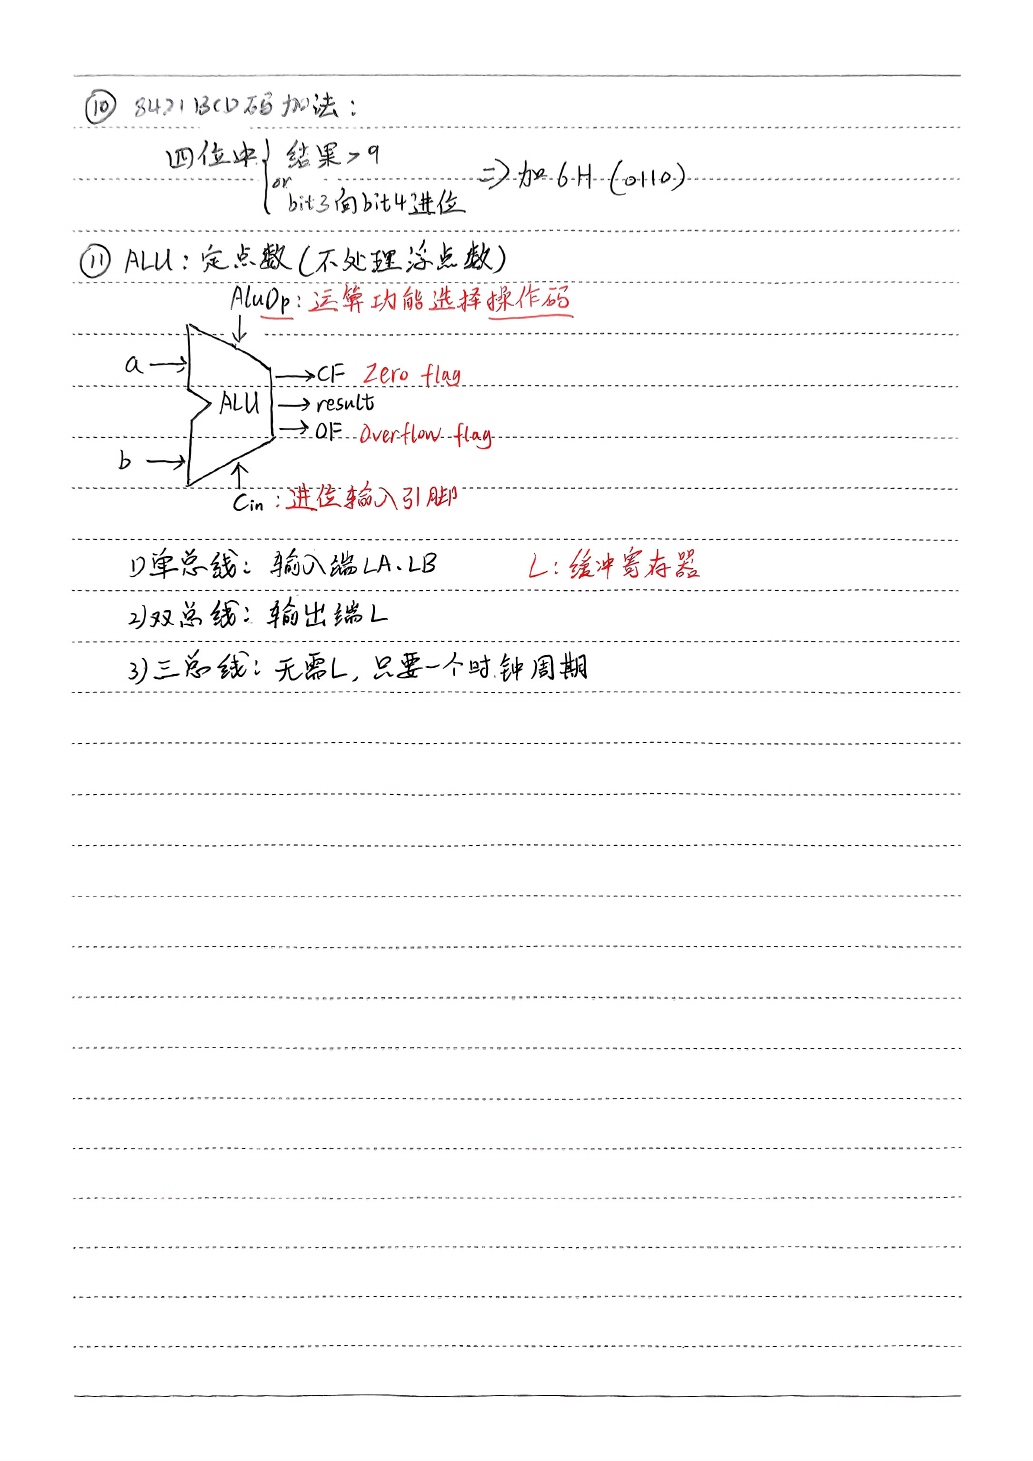 ⑩ 8421BCD码加法：
四位中 结果>9
or
bit3向bit4进位
⇒加6H(0110)
⑪ ALU：定点数(不处理浮点数)
AluOp：运算功能选择操作码
a
CF Zero flag
ALU
result
OF Overflow flag
b
Cin：进位输入引脚
1)单总线：输入端LA、LB L：缓冲寄存器
2)双总线：输出端L
3)三总线：无需L，只要一个时钟周期